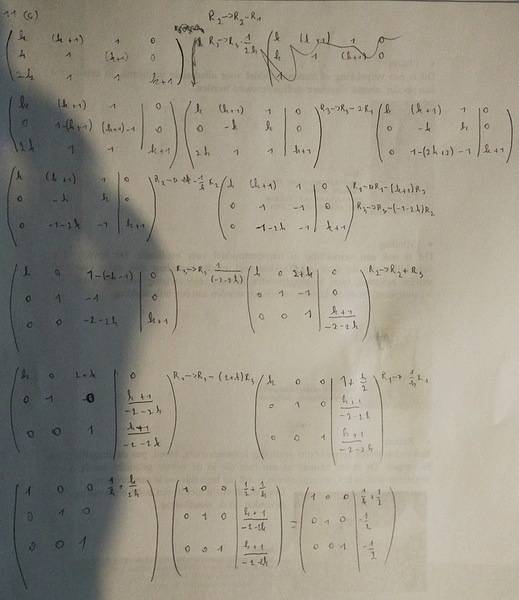 11 (c)
R2→R2-R1
k (k+1) 1 0
k 1 (k+1) 0
2k 1 1 k+1
R3→R3·1/2k
k (k+1) 1 0
k 1 (k+1) 0
1
k (k+1) 1 | 0
0 1-(k+1) (k+1)-1 | 0
2k 1 1 | k+1
k (k+1) 1 | 0
0 -k k | 0
2k 1 1 | k+1
R3→R3-2R1
k (k+1) 1 | 0
0 -k k | 0
0 1-(2k+2) -1 | k+1
k (k+1) 1 | 0
0 -k k | 0
0 -1-2k -1 | k+1
k (k+1) 1 | 0
0 1 -1 | 0
0 -1-2k -1 | k+1
R1→R1-(k+1)R2
R3→R3-(-1-2k)R2
k 0 1-(-k-1) | 0
0 1 -1 | 0
0 0 -2-2k | k+1
R3→R3·1/(-2-2k)
k 0 2+k | 0
0 1 -1 | 0
0 0 1 | k+1/-2-2k
R2→R2+R3
k 0 2+k | 0
0 1 0 | k+1/-2-2k
0 0 1 | k+1/-2-2k
R1→R1-(2+k)R3
k 0 0 | 1+k/2
0 1 0 | k+1/-2-2k
0 0 1 | k+1/-2-2k
R1→1/k R1
1 0 0 1/k+k/2k
0 1 0
0 0 1
1 0 0 | 1/2+1/k
0 1 0 | k+1/-2-2k
0 0 1 | k+1/-2-2k
=
1 0 0 | 1/k+1/2
0 1 0 | -1/2
0 0 1 | -1/2